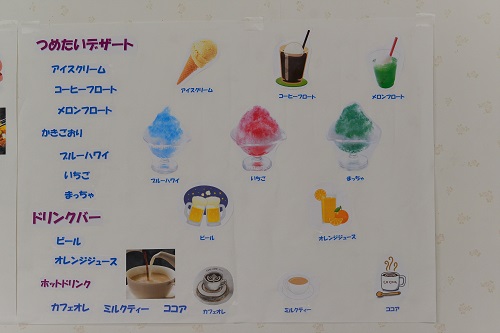 つめたいデザート
アイスクリーム
コーヒーフロート
メロンフロート
かきごおり
ブルーハワイ
いちご
まっちゃ
ドリンクバー
ビール
オレンジジュース
ホットドリンク
カフェオレ ミルクティー ココア
アイスクリーム
コーヒーフロート
メロンフロート
ブルーハワイ
いちご
まっちゃ
ビール
オレンジジュース
カフェオレ
ミルクティー
ココア